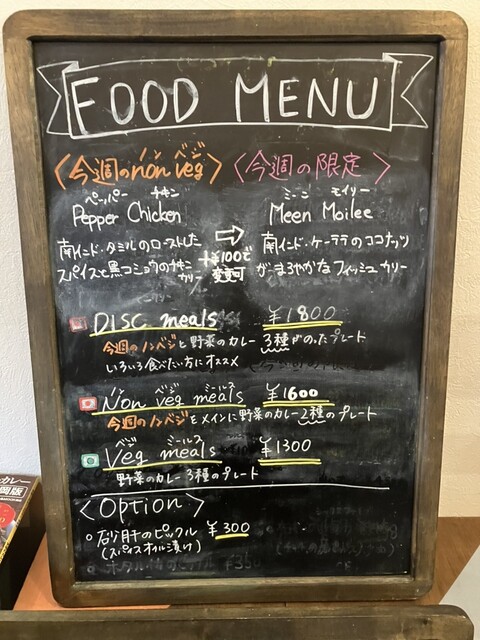 FOOD MENU
ノン ベジ
〈今週のnon veg〉
ペーパー チキン
Pepper Chicken
南インド・タミルのローストした
スパイスと黒コショウのチキン
カリー
⇨
+¥100で
変更可
〈今週の限定〉
ミーン モイリー
Meen Moilee
南インド・ケーララのココナッツ
がまろやかなフィッシュカリー
DISC meals ¥1800
今週のノンベジと野菜のカレー3種がのったプレート
いろいろ食べたい方にオススメ
ノン ベジ ミールス
Non veg meals ¥1600
今週のノンベジをメインに野菜のカレー2種のプレート
ベジ ミールス
Veg meals ¥1300
野菜のカレー3種のプレート
〈Option〉
○砂肝のピックル ¥300
(スパイスオイル漬け)
カレー
岡版